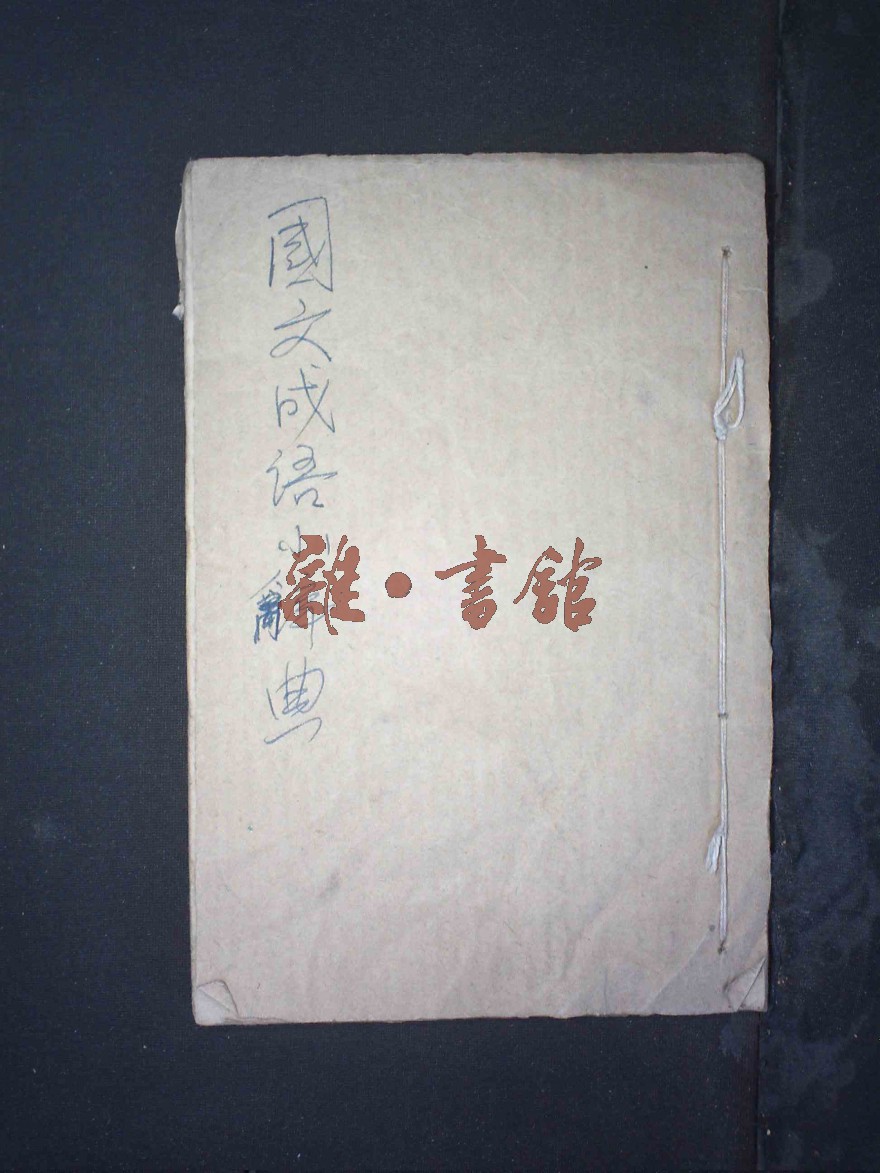 國文成语小辭典
雜·書館